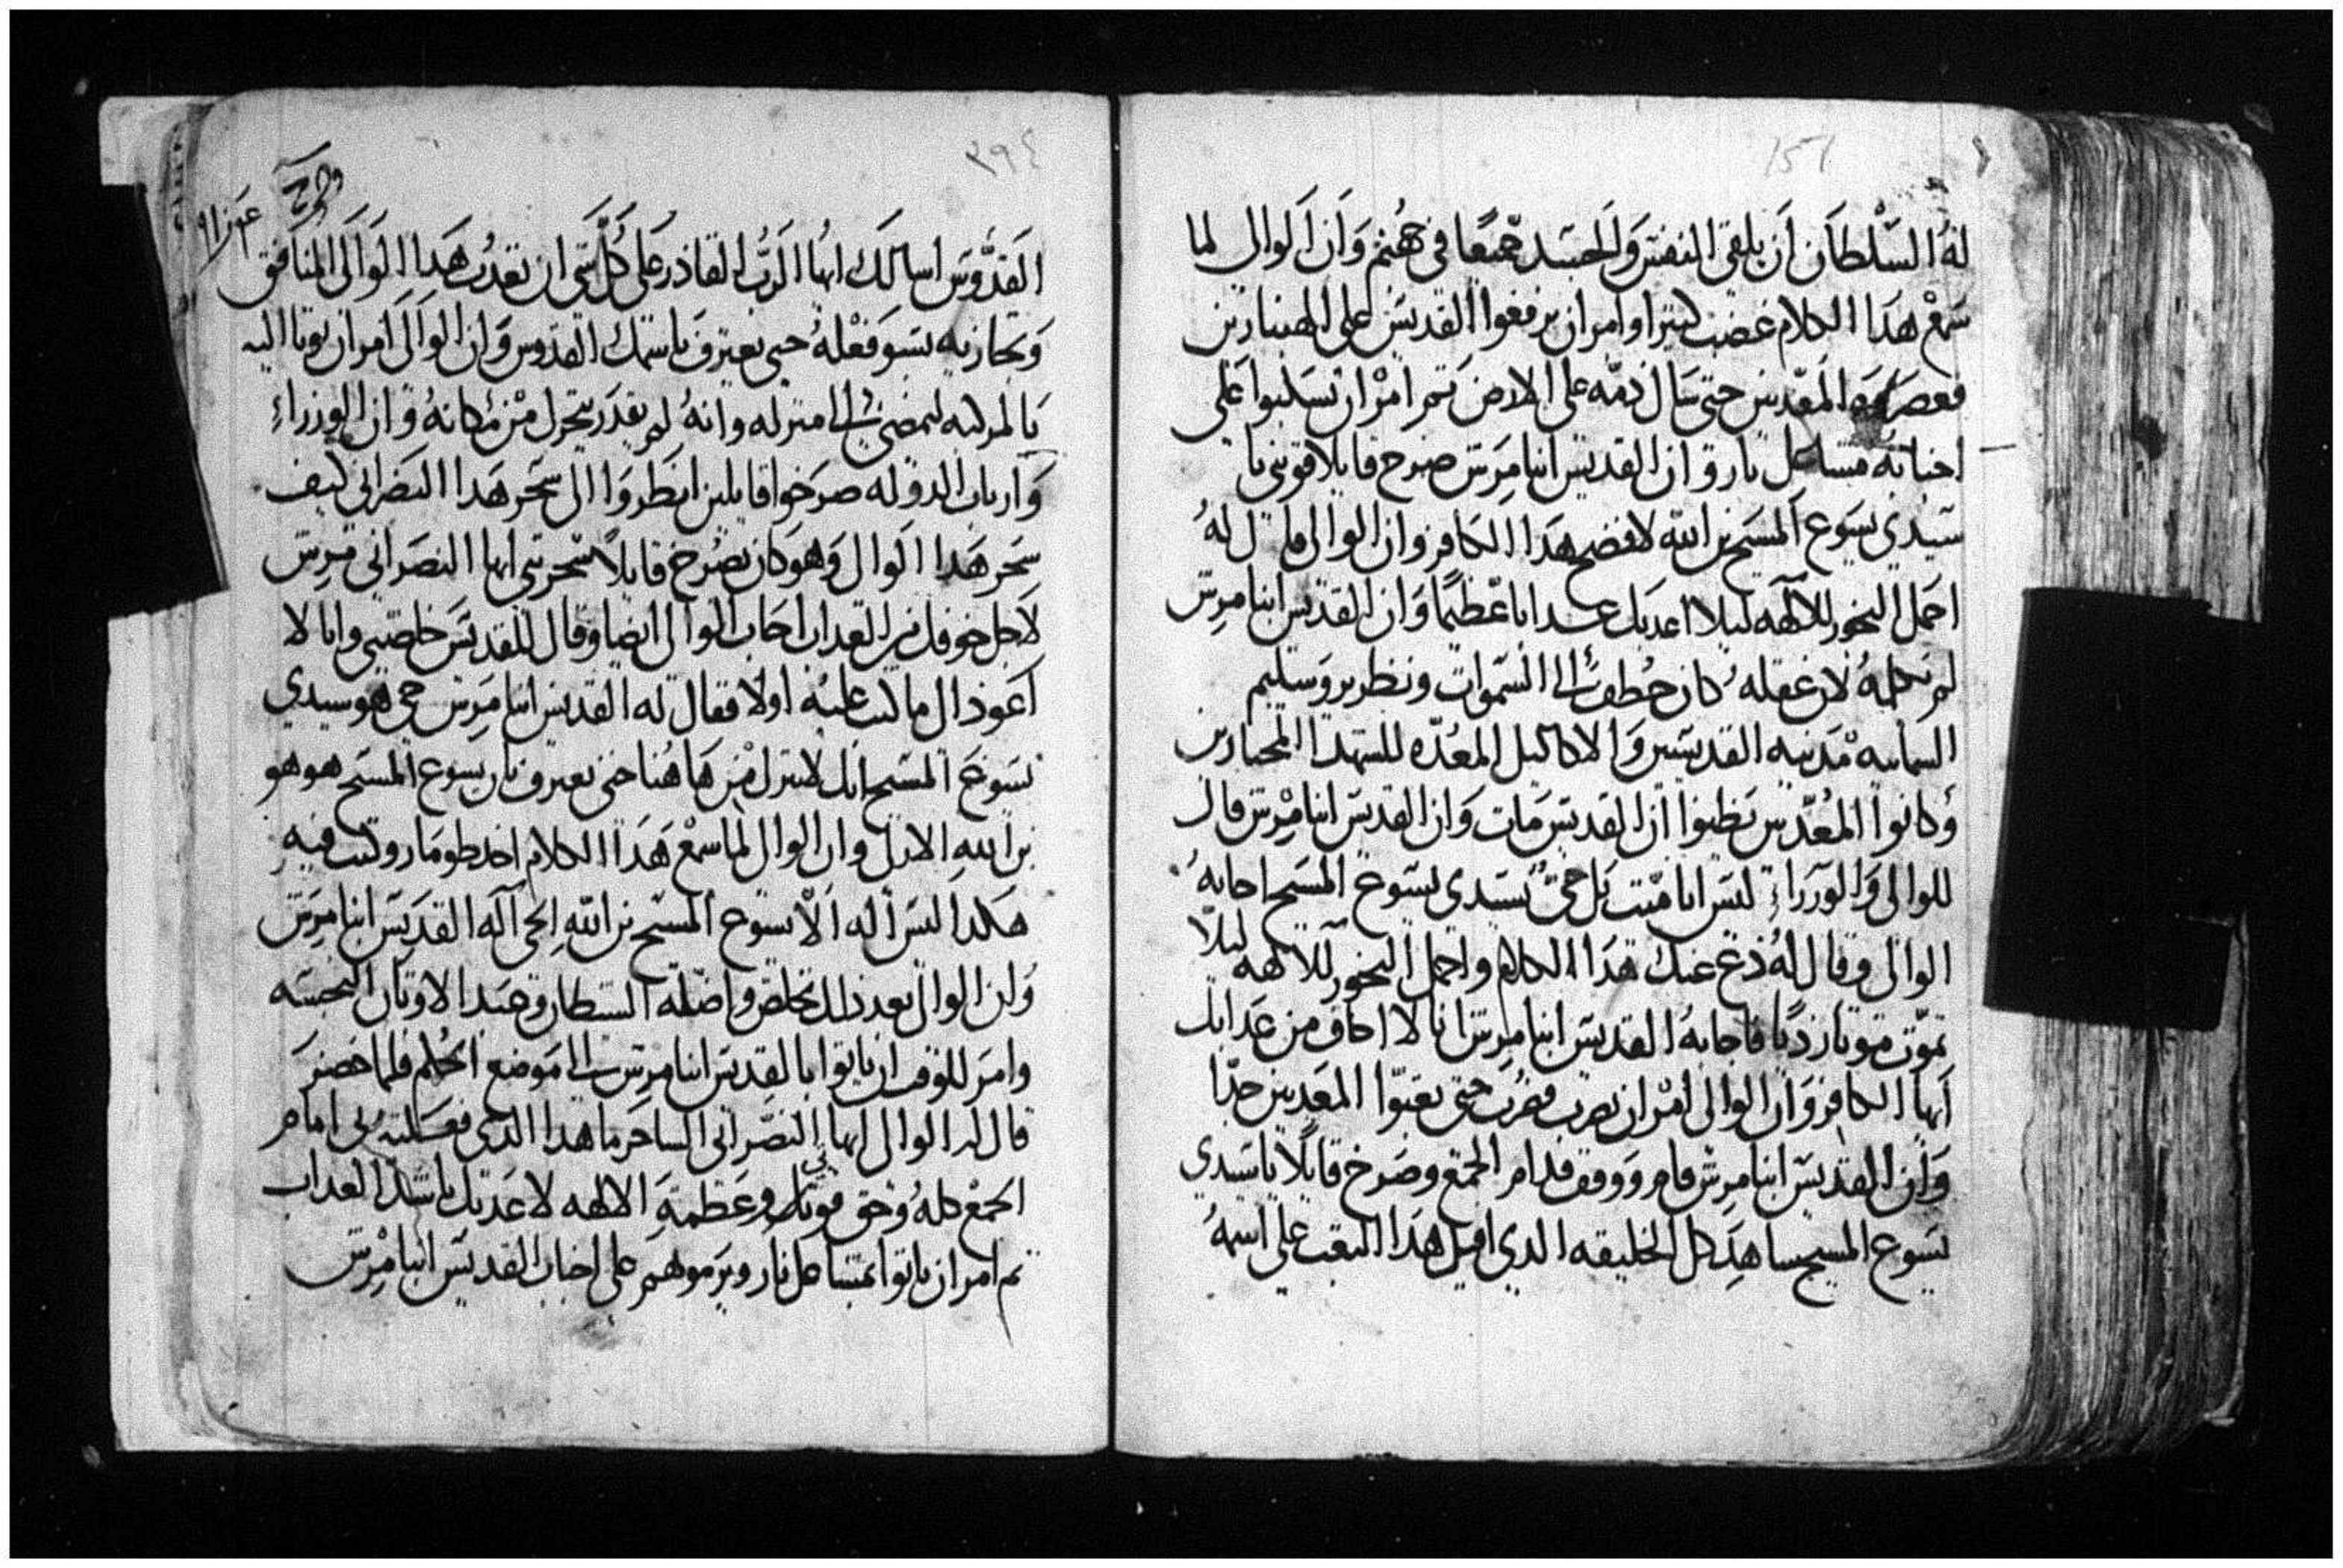 151
له السلطان ان يلقى النفس والجسد جميعا في جهنم وان الوالي لما
سمع هدا الكلام غضب كتيرا وامر ان يرفعوا القديس على الهنبازين
المعدبين حتى سال دمه على الارض تم امر ان يسلبوا على
اجنابه مشاعل نار وان القديس ابنا مرس صرخ قايلا قويني يا
سيدي يسوع المسيح بن الله لافضح هدا الكافر وان الوالي قال له
احمل البخور للالهه ليلا اعدبك عدابا عظيما وان القديس ابنا مرس
لم يكلمه لان عقله كان خطف الى السموات ونظر يروسليم
السمايية مدينة القديسين والاكاليل المعدة للشهدا المختارين
وكانوا المعدبين يظنوا ان القديس مات وان القديس ابنا مرس قال
للوالي والوزراء ليس انا ميت بل حي بسيدي يسوع المسيح اجابه
الوالي وقال له دع عنك هدا الكلام واحمل البخور للالهه ليلا
تموت موتا رديا فاجابه القديس ابنا مرس انا لا اخاف من عدابك
ايها الكافر وان الوالي امر ان يضرب فضرب حتى تعبوا المعدبين جدا
وان القديس ابنا مرس قام ووقف قدام الجمع وصرخ قايلا يا سيدي
يسوع المسيح ساهد كل الخليقه الدي اقبل هدا التعب على اسمه
٣٩٤
القدوس اسالك ايها الرب القادر على كل شي ان تعدب هدا الوالي المنافق
وتجازيه بسو فعله حتى يعترف باسمك القدوس وان الوالي امر ان يوتا اليه
بالمركبه ليمضي الى منزله وانه لم يقدر يتحرك من مكانه وان الوزراء
وارباب الدوله صرخوا قايلين انظروا الى سحر هدا النصراني كيف
سحر هدا الوالي وهو كان يصرخ قايلا سحرتني ايها النصراني مرس
لاجل خوفك من العداب اجاب الوالي ايضا وقال للقديس خلصني وانا لا
اعود الى ما كنت عليه اولا فقال له القديس ابنا مرس حي هو سيدي
يسوع المسيح انك لا تنزل من هاهنا حتى تعترف بان يسوع المسيح هو هو
بن الله الازلي وان الوالي لما سمع هدا الكلام اخد طومار وكتب فيه
هكدا ليس اله الا يسوع المسيح بن الله الحي اله القديس ابنا مرس
وان الوالي بعد دلك تخلص واضله السيطان وعبد الاوتان النجسه
وامر للوقت ان ياتوا بالقديس ابنا مرس الى موضع الحكم فلما حضر
قال له الوالي ايها النصراني الساحر ما هدا الدي فعلته بي امام
الجمع كله وحق قوتي وعظمة الالهه لاعدبك باشد العداب
تم امر ان ياتوا بمشاعل نار ويرموهم على اجناب القديس ابنا مرس